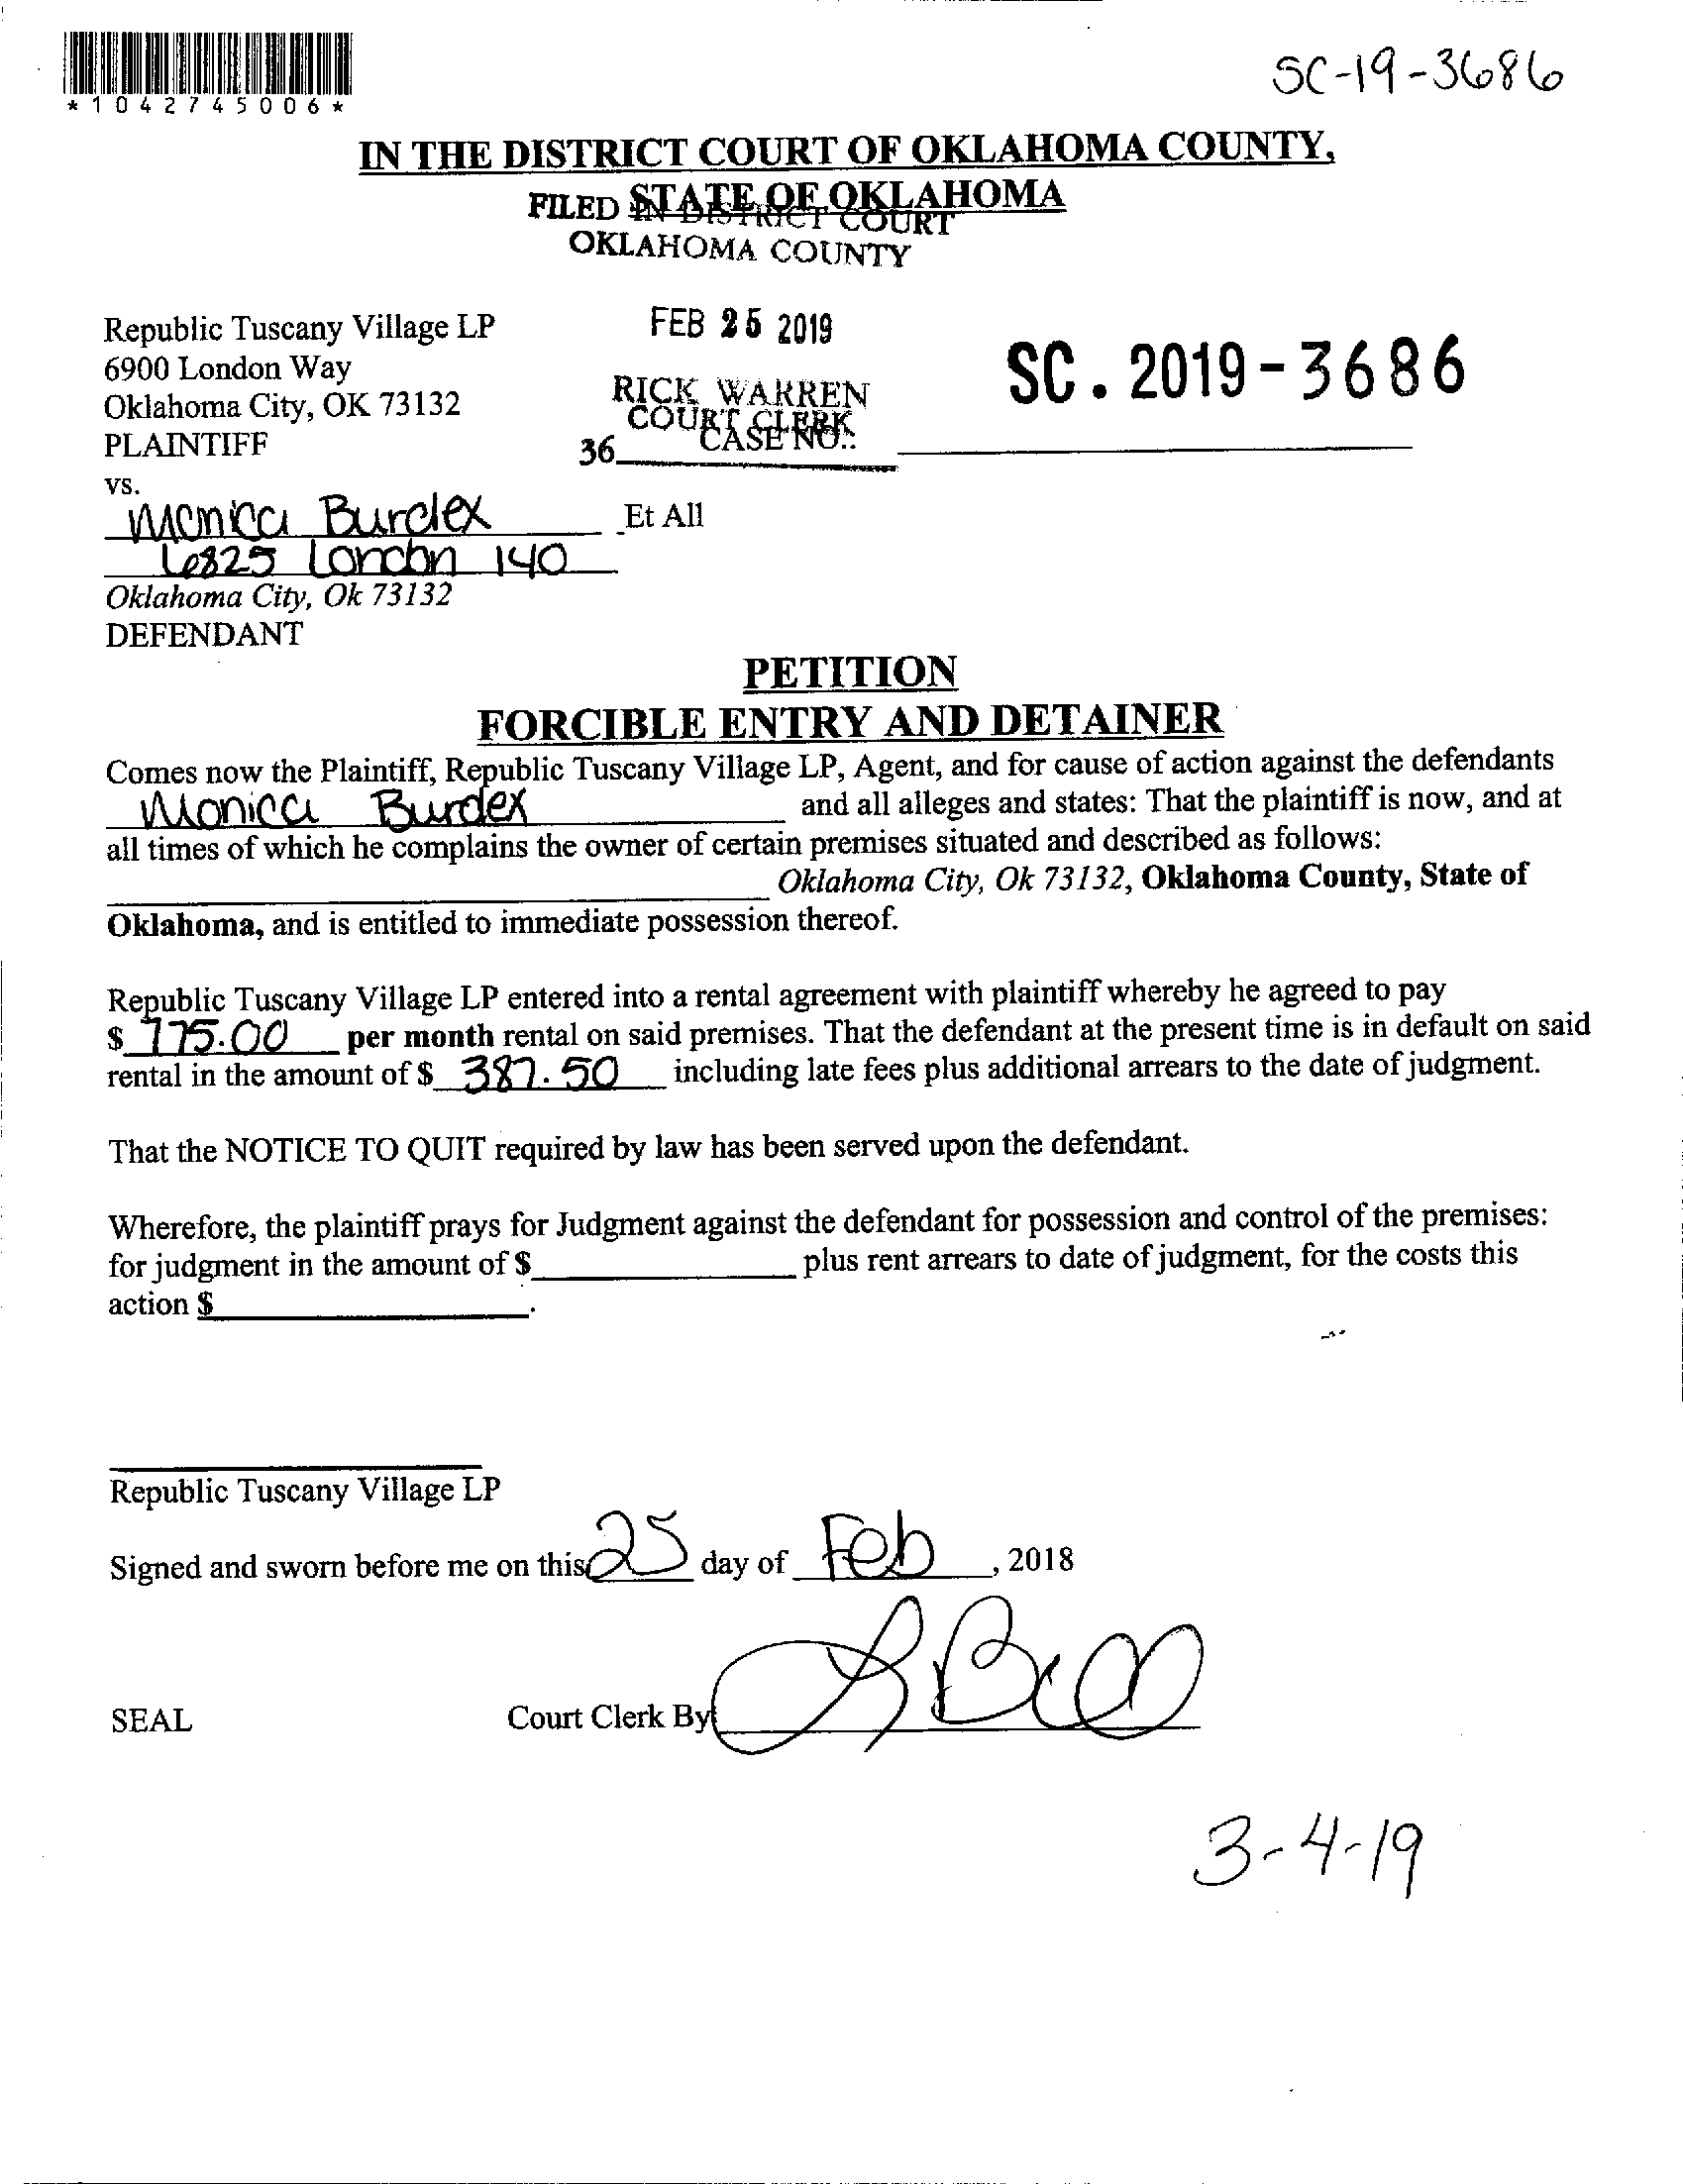 *1042745006*
SC-19-3686
IN THE DISTRICT COURT OF OKLAHOMA COUNTY,
STATE OF OKLAHOMA
FILED IN DISTRICT COURT
OKLAHOMA COUNTY
FEB 25 2019
RICK WARREN
COURT CLERK
36
SC. 2019-3686
CASE NO.:
Republic Tuscany Village LP
6900 London Way
Oklahoma City, OK 73132
PLAINTIFF
vs.
Monica Burdex Et All
6825 London 140
Oklahoma City, Ok 73132
DEFENDANT
PETITION
FORCIBLE ENTRY AND DETAINER
Comes now the Plaintiff, Republic Tuscany Village LP, Agent, and for cause of action against the defendants
Monica Burdex and all alleges and states: That the plaintiff is now, and at
all times of which he complains the owner of certain premises situated and described as follows:
Oklahoma City, Ok 73132, Oklahoma County, State of
Oklahoma, and is entitled to immediate possession thereof.
Republic Tuscany Village LP entered into a rental agreement with plaintiff whereby he agreed to pay
$ 775.00 per month rental on said premises. That the defendant at the present time is in default on said
rental in the amount of $ 387.50 including late fees plus additional arrears to the date of judgment.
That the NOTICE TO QUIT required by law has been served upon the defendant.
Wherefore, the plaintiff prays for Judgment against the defendant for possession and control of the premises:
for judgment in the amount of $ plus rent arrears to date of judgment, for the costs this
action $ .
Republic Tuscany Village LP
Signed and sworn before me on this 25 day of Feb, 2018
SEAL Court Clerk By
3-4-19